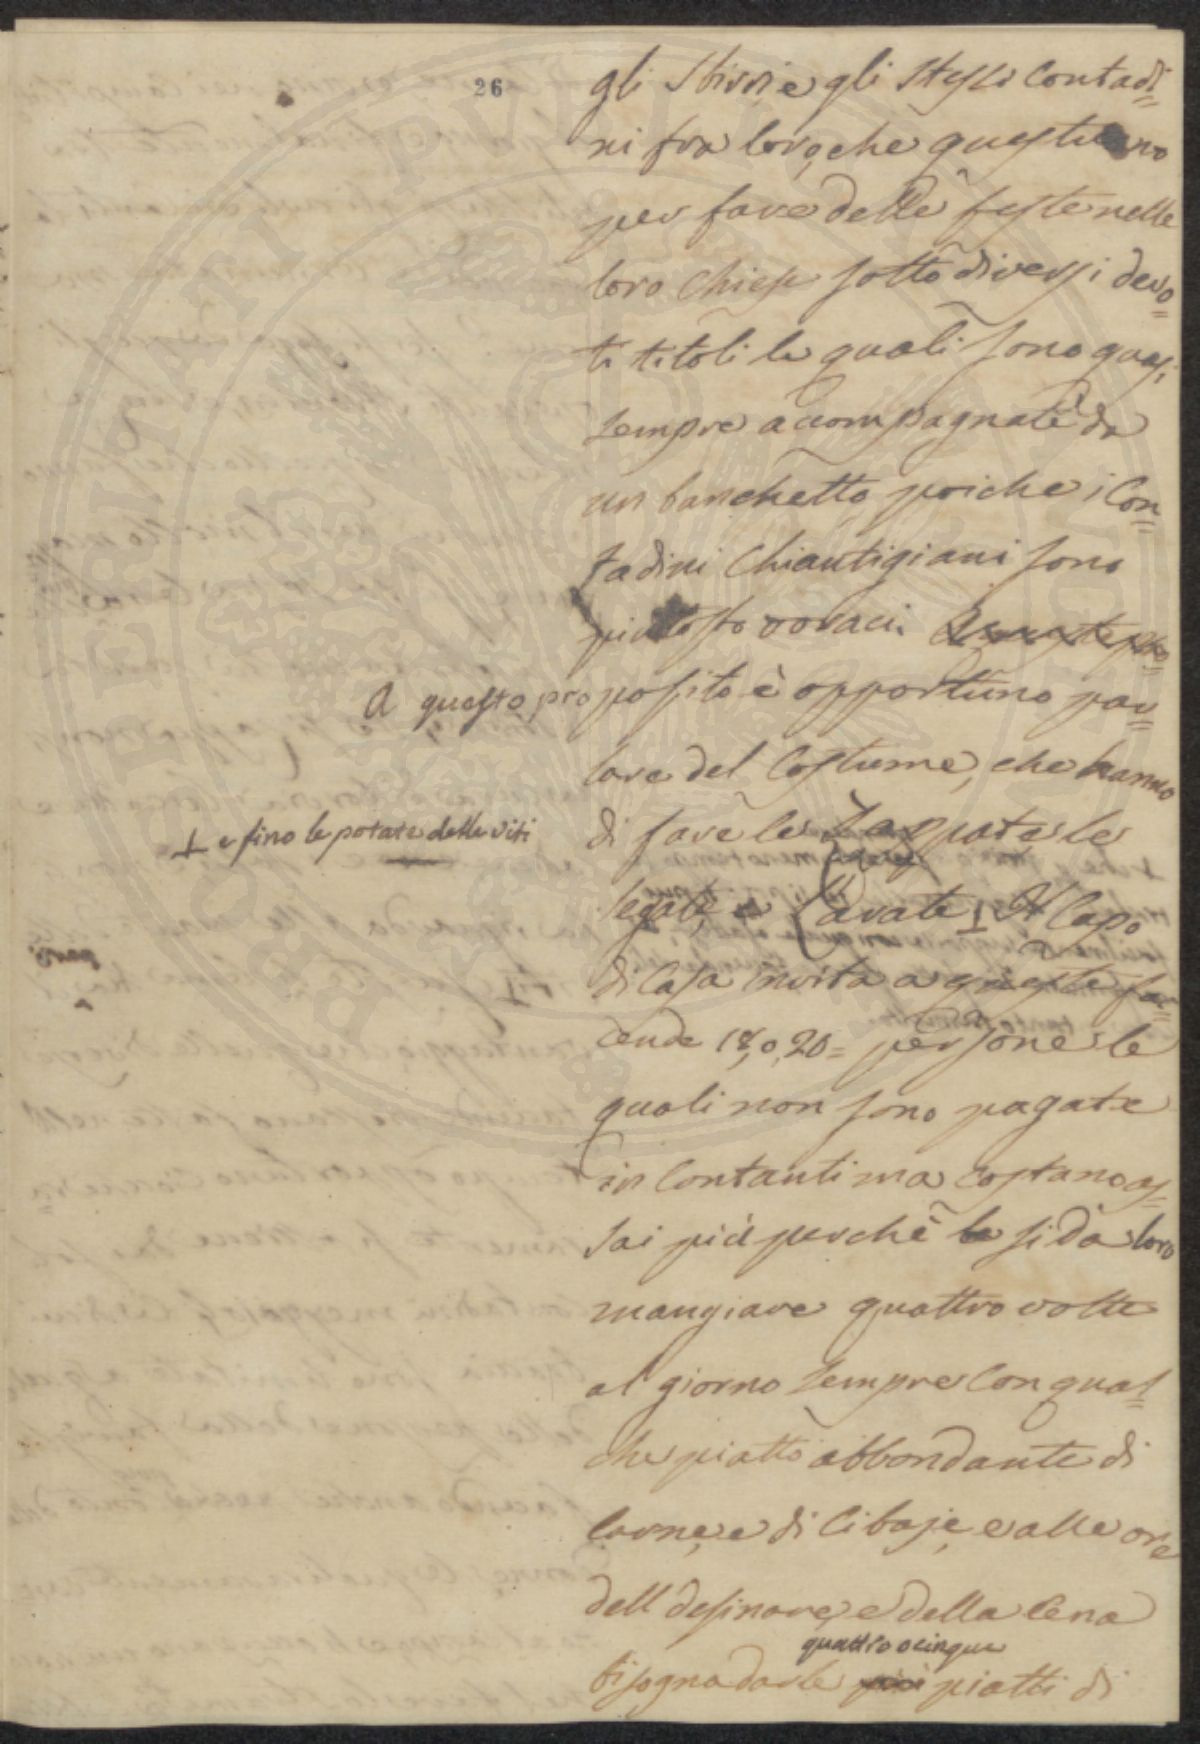 26
gli Sbirri e gli stessi Contadi=
ni fra loro, che questuano
per fare delle feste nelle
loro Chiese sotto diversi devo=
ti titoli le quali sono quasi
sempre accompagnate da
un banchetto poiche i Con=
tadini Chiantigiani sono
piuttosto voraci.
A questo proposito è opportuno par=
lare del Costume, che hanno
di fare le Zappate le
⊥ e fino le potate delle viti
legate, e Cavate ⊥ Il Capo
di Casa invita a queste fac=
cende 18, o 20= persone le
quali non sono pagate
in Contanti ma costano as=
sai più perchè si dà loro
mangiare quattro volte
al giorno sempre Con qual=
che piatto abbondante di
Carne, e di Cibaje, e alle ore
dell desinare, e della Cena
quattro o cinque
bisogna darle più piatti di
PERICULIS PUBLICAE